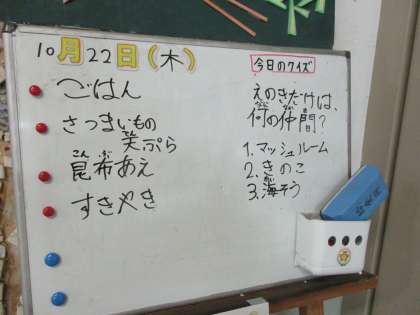 10月22日(木)
ごはん
さつまいもの
天ぷら
昆布あえ
すきやき
今日のクイズ
えのきだけは、
何の仲間?
1.マッシュルーム
2.きのこ
3.海そう